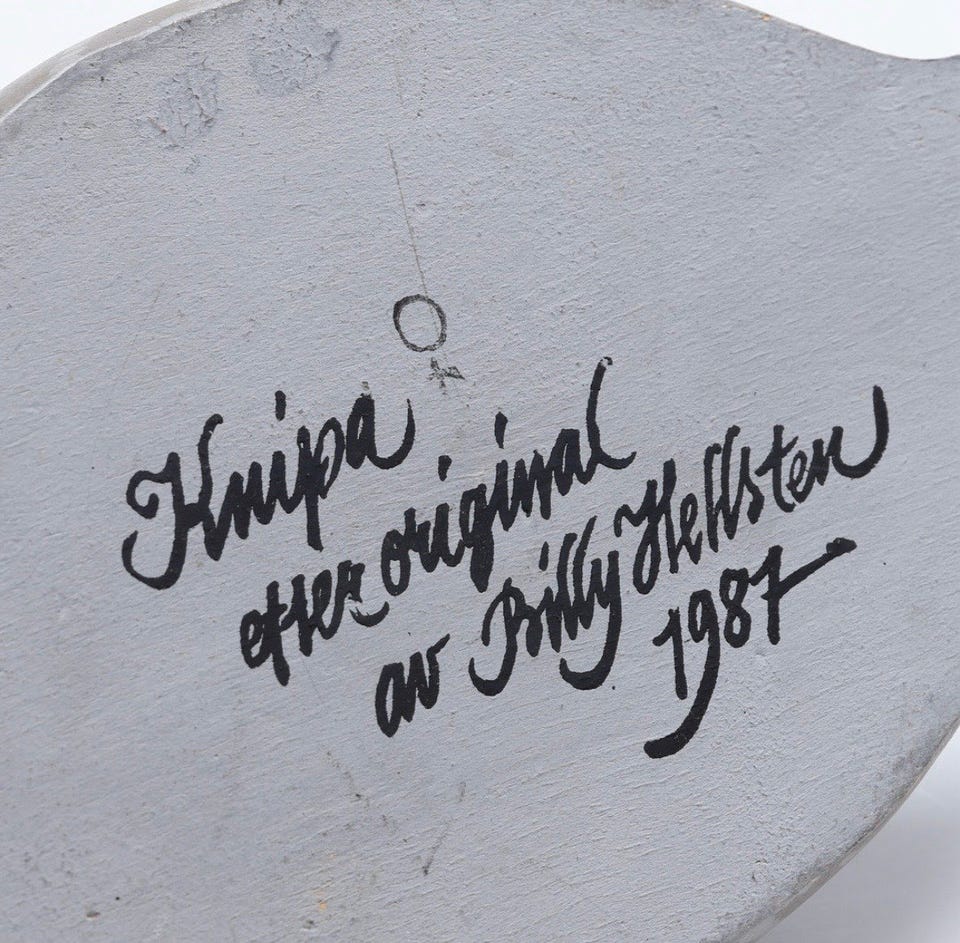 ♀
Knipa
efter original
av Billy Hellsten
1987